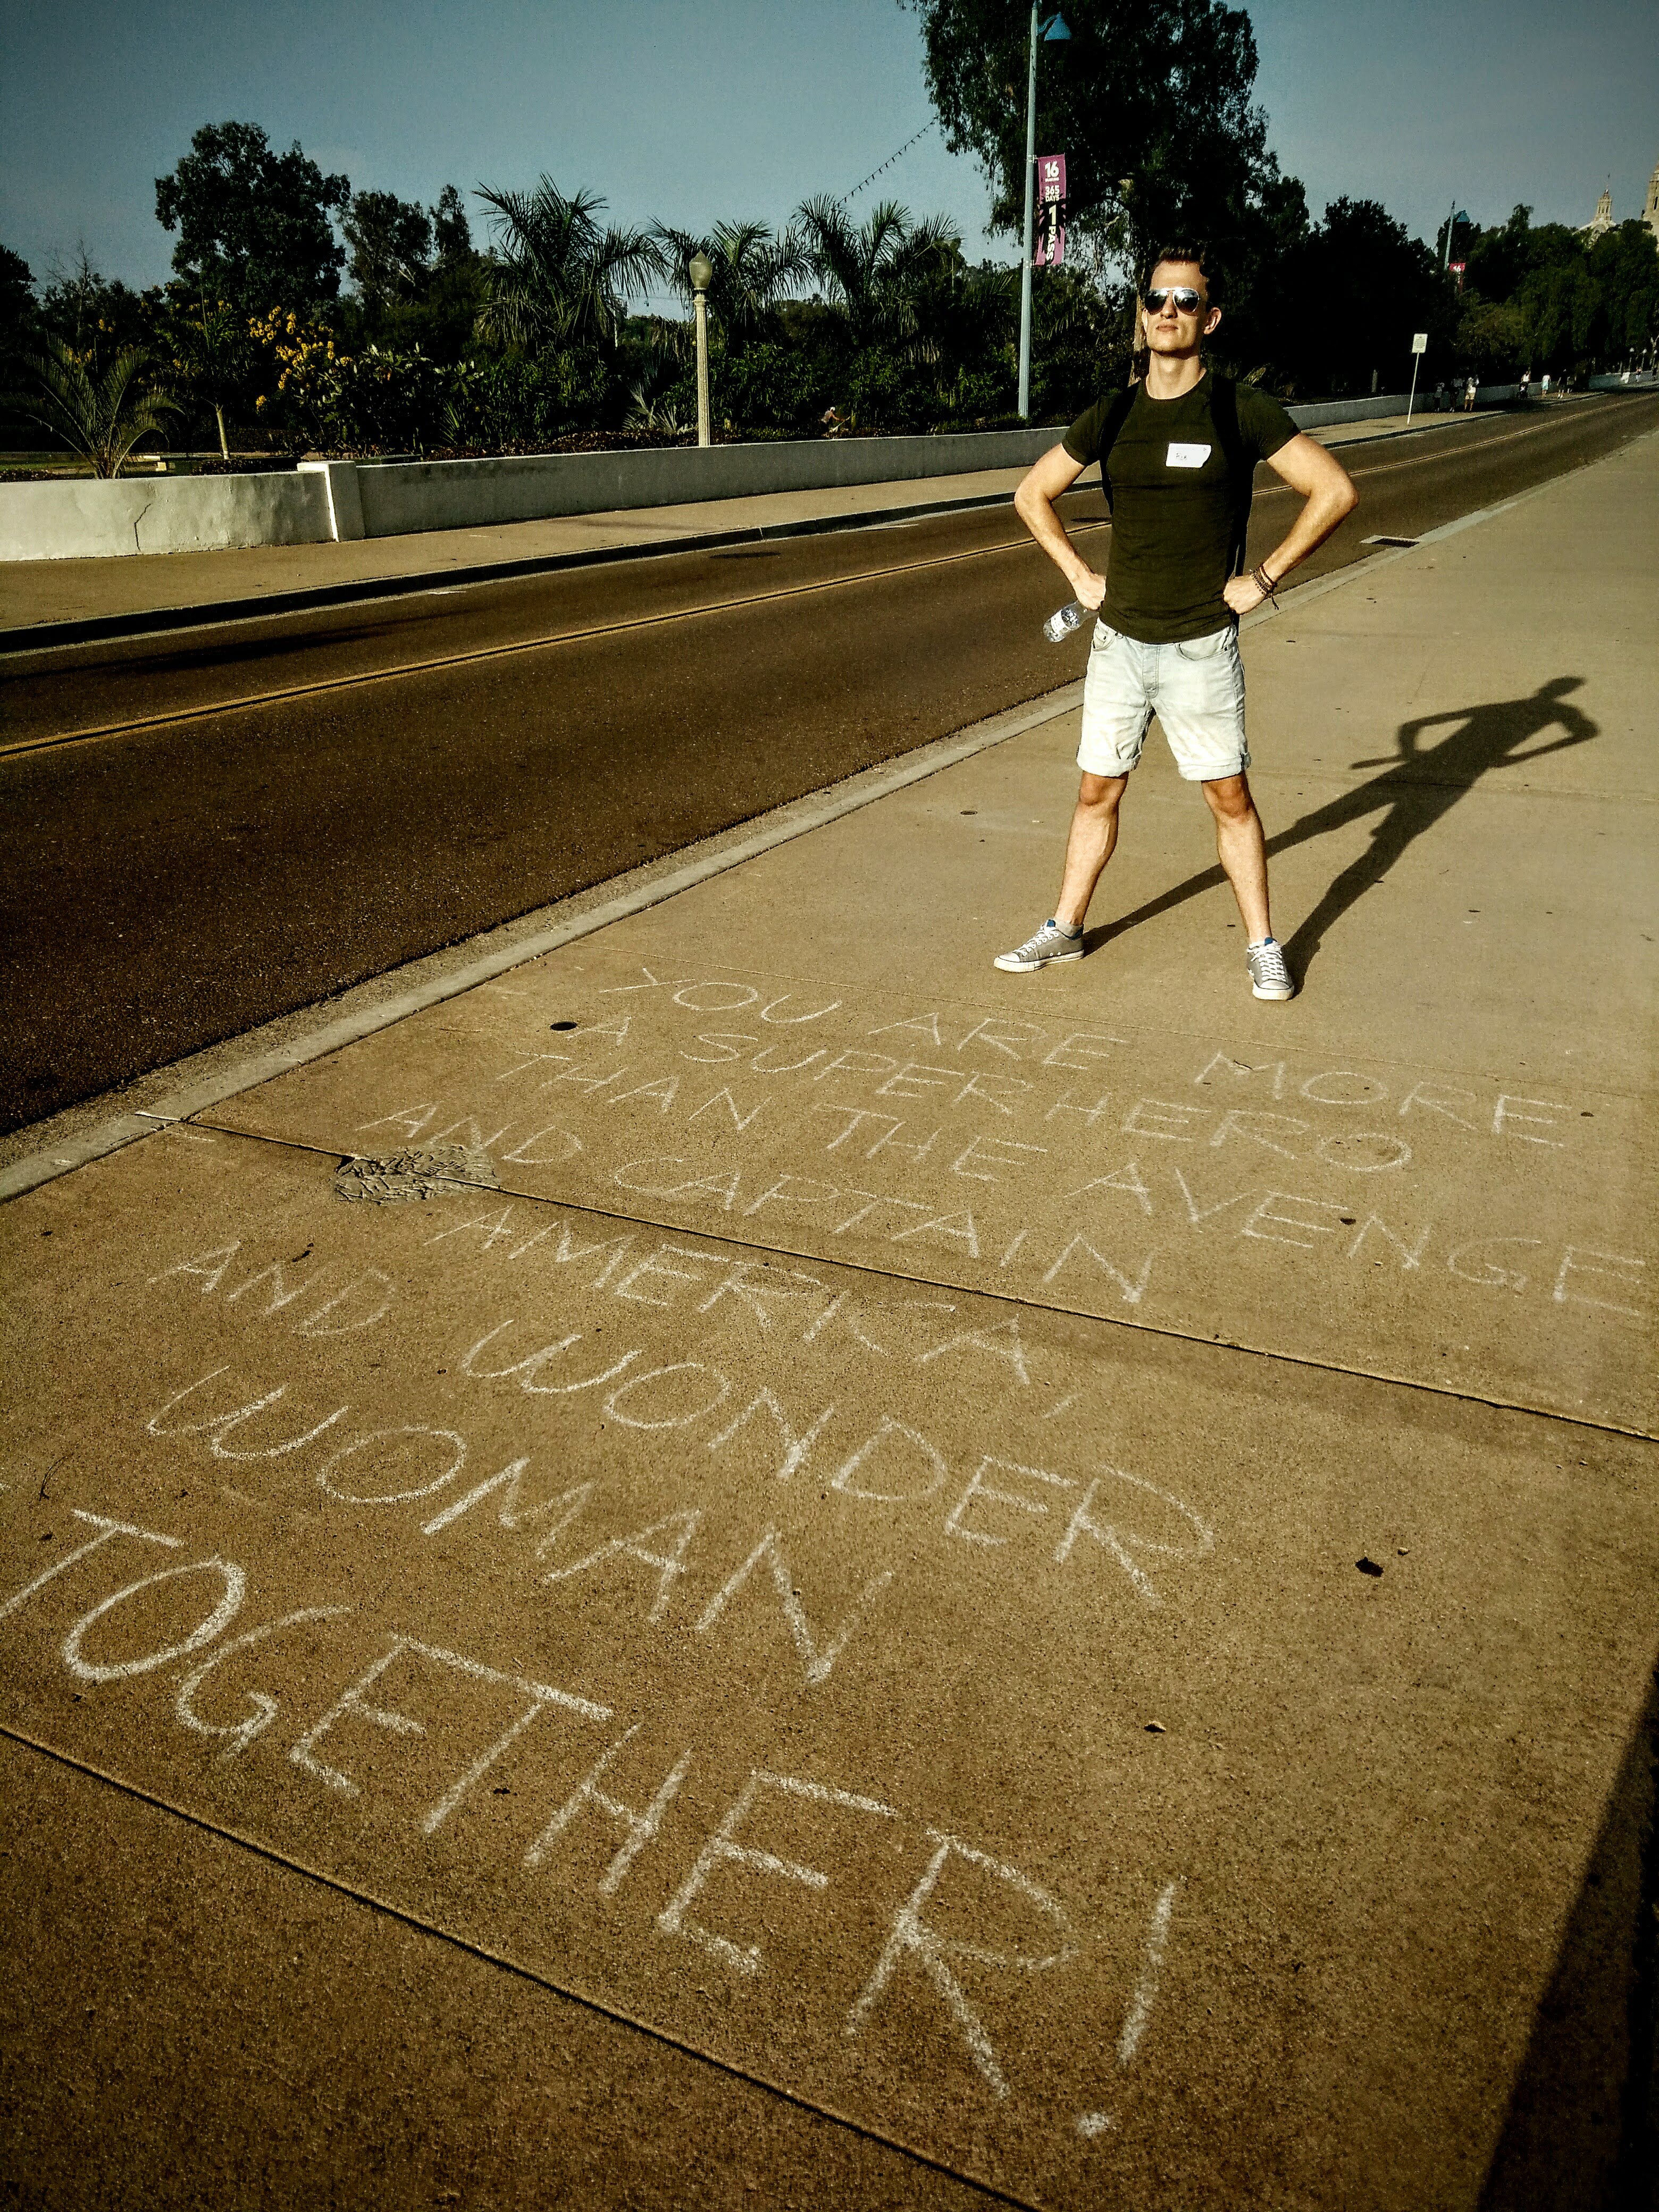 16
365
DAYS
1 PASS
YOU ARE MORE
A SUPERHERO
THAN THE AVENGE
AND CAPTAIN
AMERICA,
AND WONDER
WOMAN
TOGETHER!